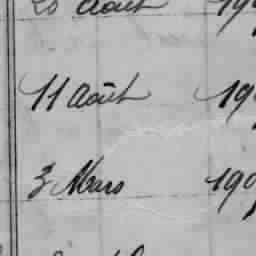 20 Août 19
11 Août 19
3 Mars 190